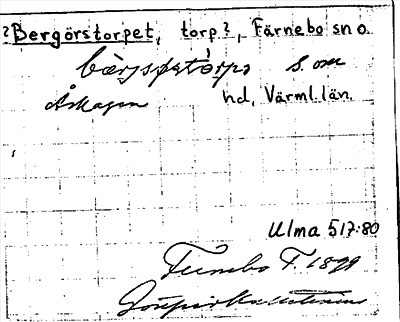 ?Bergörstorpet, torp?, Färnebo sn o.
s. om
Åskagen hd, Värml. län.
Ulma 517:80
Fernebo F. 1899